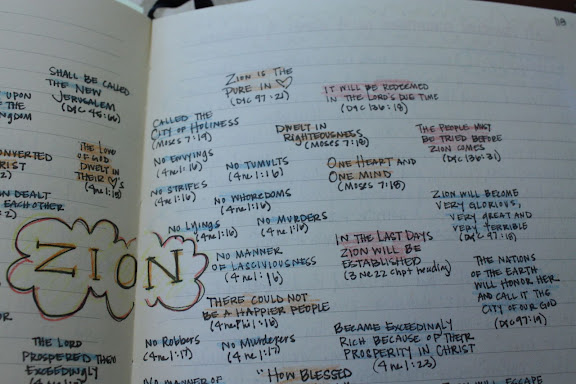 SHALL BE CALLED
THE NEW
JERUSALEM
(D&C 45:66)
UPON
THE
THE LORD
OF GOD
DWELT IN
THEIR ♡'s
(4 ne 1:15)
CONVERTED
DEALT
EACH OTHER
ZION
THE LORD
PROSPERED THEM
EXCEEDINGLY
ZION IS THE
PURE IN ♡
(D&C 97:21)
IT WILL BE REDEEMED
IN THE LORD'S DUE TIME
(D&C 136:18)
CALLED THE
CITY OF HOLINESS
(Moses 7:19)
DWELT IN
RIGHTEOUSNESS
(Moses 7:18)
THE PEOPLE MUST
BE TRIED BEFORE
ZION COMES
(D&C 136:31)
NO ENVYINGS
(4 ne 1:16)
NO TUMULTS
(4 ne 1:16)
ONE HEART AND
ONE MIND
(Moses 7:18)
NO STRIFES
(4 ne 1:16)
NO WHOREDOMS
(4 ne 1:16)
ZION WILL BECOME
VERY GLORIOUS,
VERY GREAT AND
VERY TERRIBLE
(D&C 97:18)
NO LYINGS
(4 ne 1:16)
NO MURDERS
(4 ne 1:16)
IN THE LAST DAYS
ZION WILL BE
ESTABLISHED
(3 ne 22 chpt heading)
NO MANNER
OF LASCIVIOUSNESS
(4 ne 1:16)
THE NATIONS
OF THE EARTH
WILL HONOR HER
AND CALL IT THE
CITY OF OUR GOD
(D&C 97:19)
THERE COULD NOT
BE A HAPPIER PEOPLE
(4 ne 1:16)
NO ROBBERS
(4 ne 1:17)
NO MURDERERS
(4 ne 1:17)
BECAME EXCEEDINGLY
RICH BECAUSE OF THEIR
PROSPERITY IN CHRIST
(4 ne 1:23)
NO MANNER OF
"HOW BLESSED
WILL ESCAPE